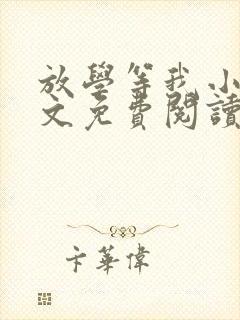 放學等我 小
文免費閱讀
卡華偉